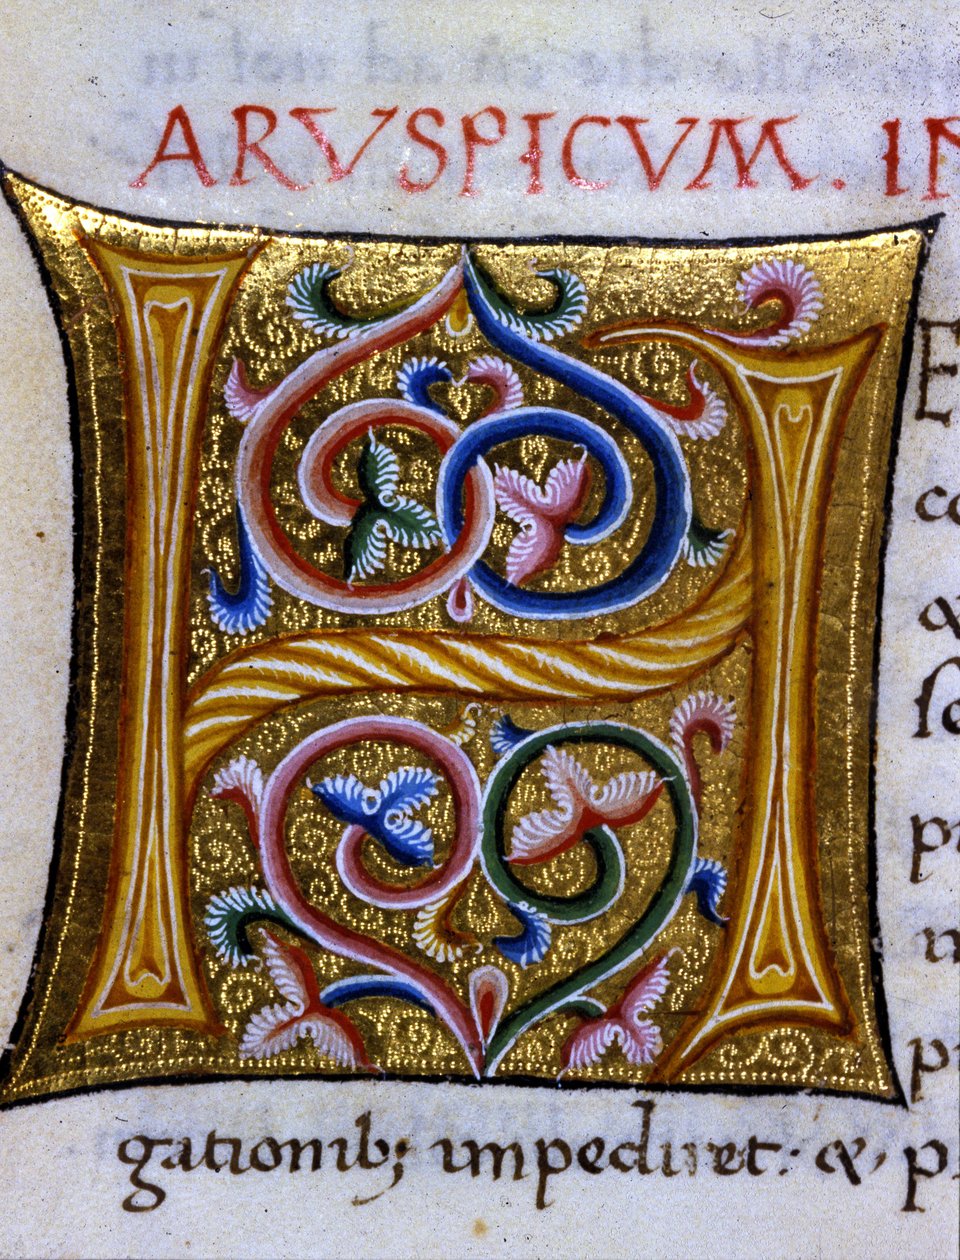 ARVSPICVM. IN
H
E
co
&
ſe
p
n
p
gationib; impediret: &, p